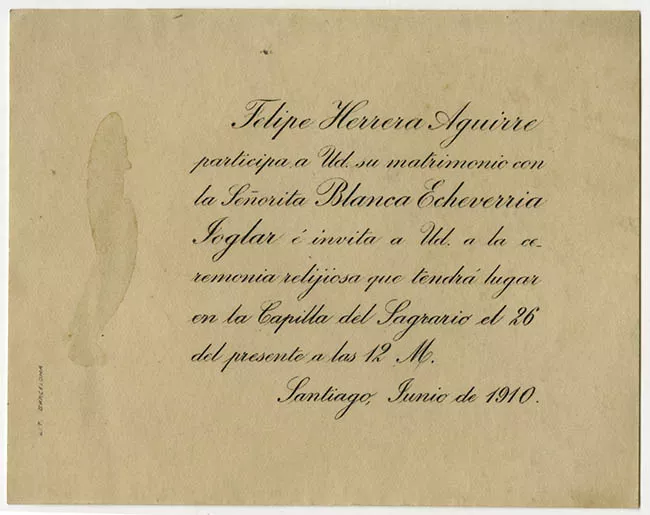 Felipe Herrera Aguirre
participa a Ud. su matrimonio con
la Señorita Blanca Echeverria
Joglar é invita a Ud. a la ce-
remonia relijiosa que tendrá lugar
en la Capilla del Sagrario el 26
del presente a las 12 M.
Santiago, Junio de 1910.
LIT. BARCELONA